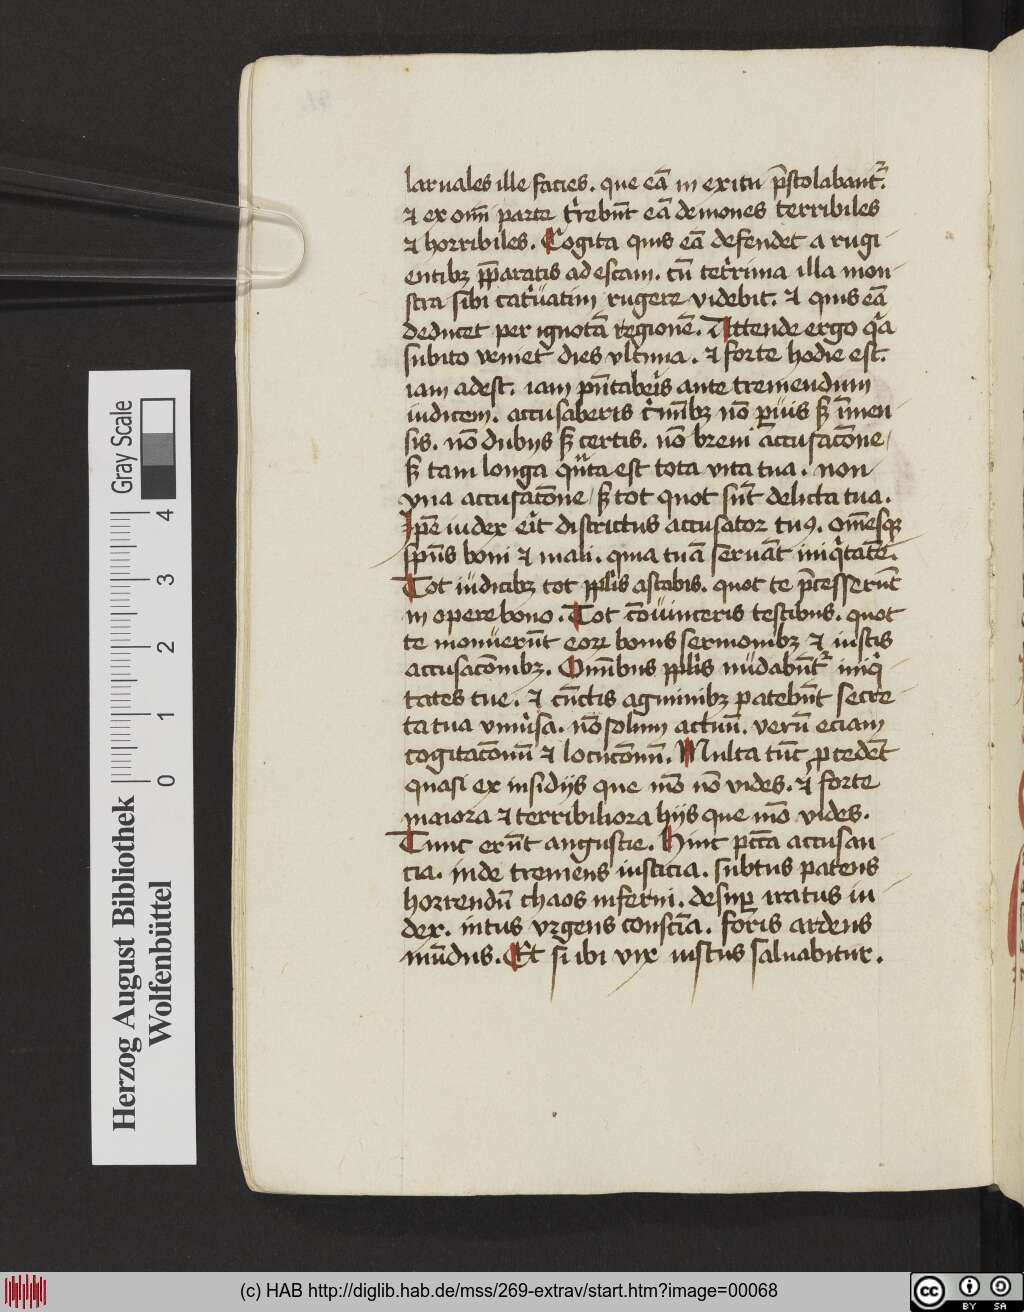 laruales ille facies. que eā in exitu p̄stolabant᷑.
⁊ ex om̄i parte t̓rebūt eā demones terribiles
⁊ horribiles. Cogita quis eā defendet a rugi-
entibꝫ p̄paratis ad escam. cū tet̓rima illa mon-
stra sibi cat̓uatim rugere videbit. ⁊ quis eā
deducet per ignotā regionē. Attende ergo qͣa
subito veniet dies vltima. ⁊ forte hodie est.
iam adest. iam pn̄taberis ante tremendum
iudicem. accusaberis c̓mībꝫ nō ꝑuis sꝫ īmen-
sis. nō dubijs sꝫ certis. nō breui accusacōne/
sꝫ tam longa qͣnta est tota vita tua. non
vna accusacōne/ sꝫ tot quot sūt delicta tua.
Ip̄e iudex erit districtus accusator tuꝰ. om̄esqꝫ
sp̄us boni ⁊ mali. quia tuā seruāt iniqͥtatē.
Tot iudicibꝫ tot ppl̓is astabis. quot te p̄cesserūt
in opere bono. Tot cōuinceris testibus. quot
te monuerūt eoꝝ bonis sermonibꝫ ⁊ iustis
accusacōnibꝫ. Om̄ibus ppl̓is nudabūt᷑ iniqͥ
tates tue. ⁊ cūctis agminibꝫ patebūt secre-
ta tua vniu̓sa. nō solum actuū. verū eciam
cogitacōnū ⁊ locucōnū. Multa tūc ꝓcedēt
quasi ex insidijs que mō nō vides. ⁊ forte
maiora ⁊ terribiliora hijs que mō vides.
Tunc erūt angustie. Hinc pcc̄a accusan-
cia. inde tremens iusticia. subtus patens
horrendū chaos inferni. desuꝑ iratus iu-
dex. intus vrgens consciā. foris ardens
mūdus. Et si ibi vix iustus saluabitur.
Herzog August Bibliothek
Wolfenbüttel
0 1 2 3 4
Gray Scale
(c) HAB http://diglib.hab.de/mss/269-extrav/start.htm?image=00068
cc BY SA